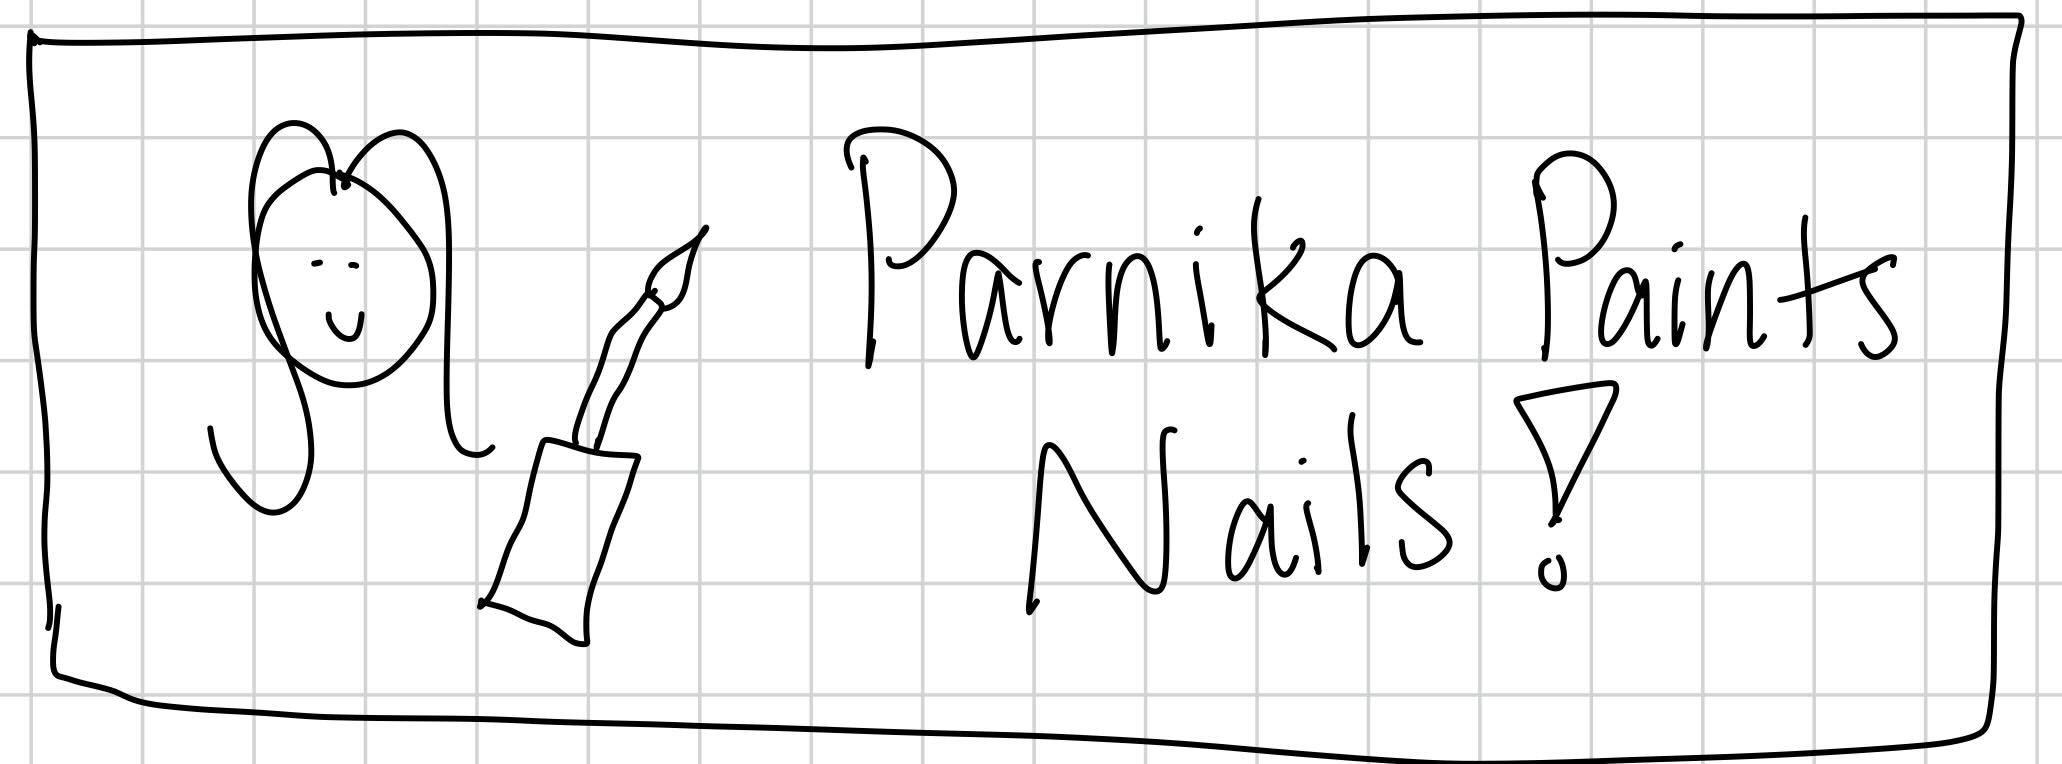 Parnika Paints
Nails!